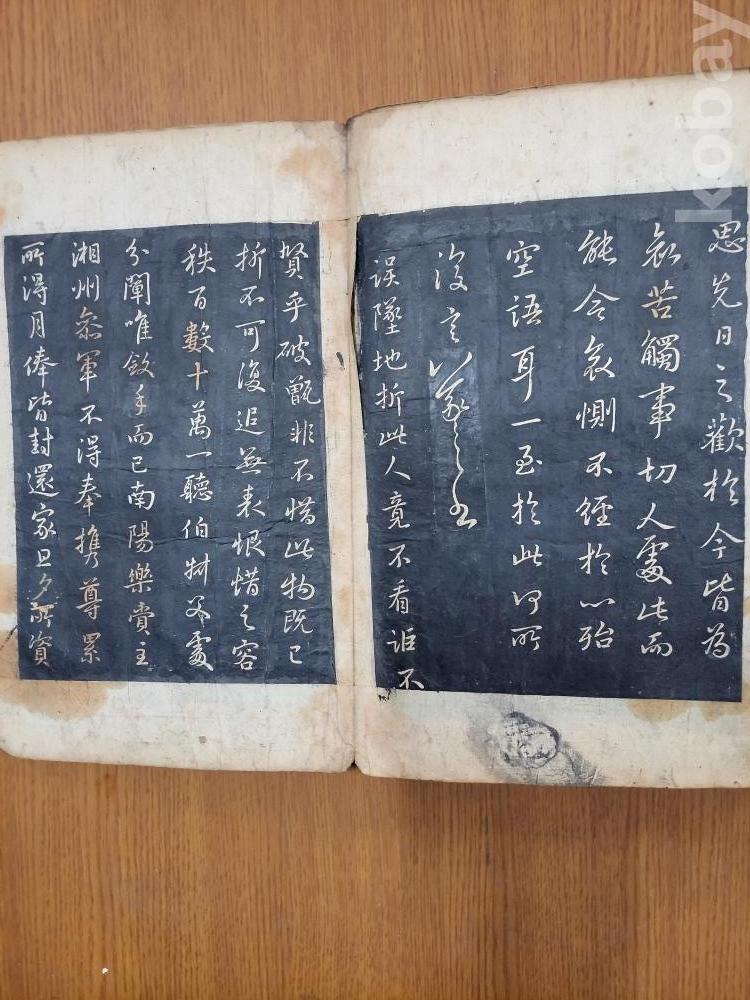 思先日之歡於今皆為
哀苦觸事切人處此而
能令哀惻不經於心殆
空語耳一至於此何所
復言
誤墜地折此人竟不看詎不
賢乎破甑非不惜此物既已
折不可復追無表恨惜之容
秩百數十萬一聽伯財父處
分闡唯斂手而已南陽樂賞主
湘州叅軍不得奉携尊累
所得月俸皆封還家旦夕所資
kobay